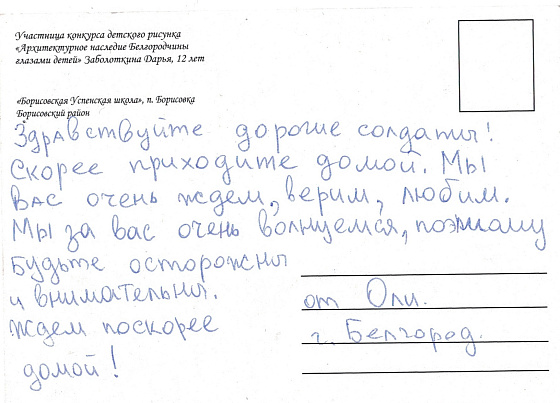 Участница конкурса детского рисунка
«Архитектурное наследие Белгородчины
глазами детей» Заболоткина Дарья, 12 лет
«Борисовская Успенская школа», п. Борисовка
Борисовский район
Здравствуйте дорогие солдаты!
Скорее приходите домой. Мы
вас очень ждем, верим, любим.
Мы за вас очень волнуемся, поэтому
будьте осторожны
и внимательны.
Ждем поскорее
домой!
от Оли.
г. Белгород.